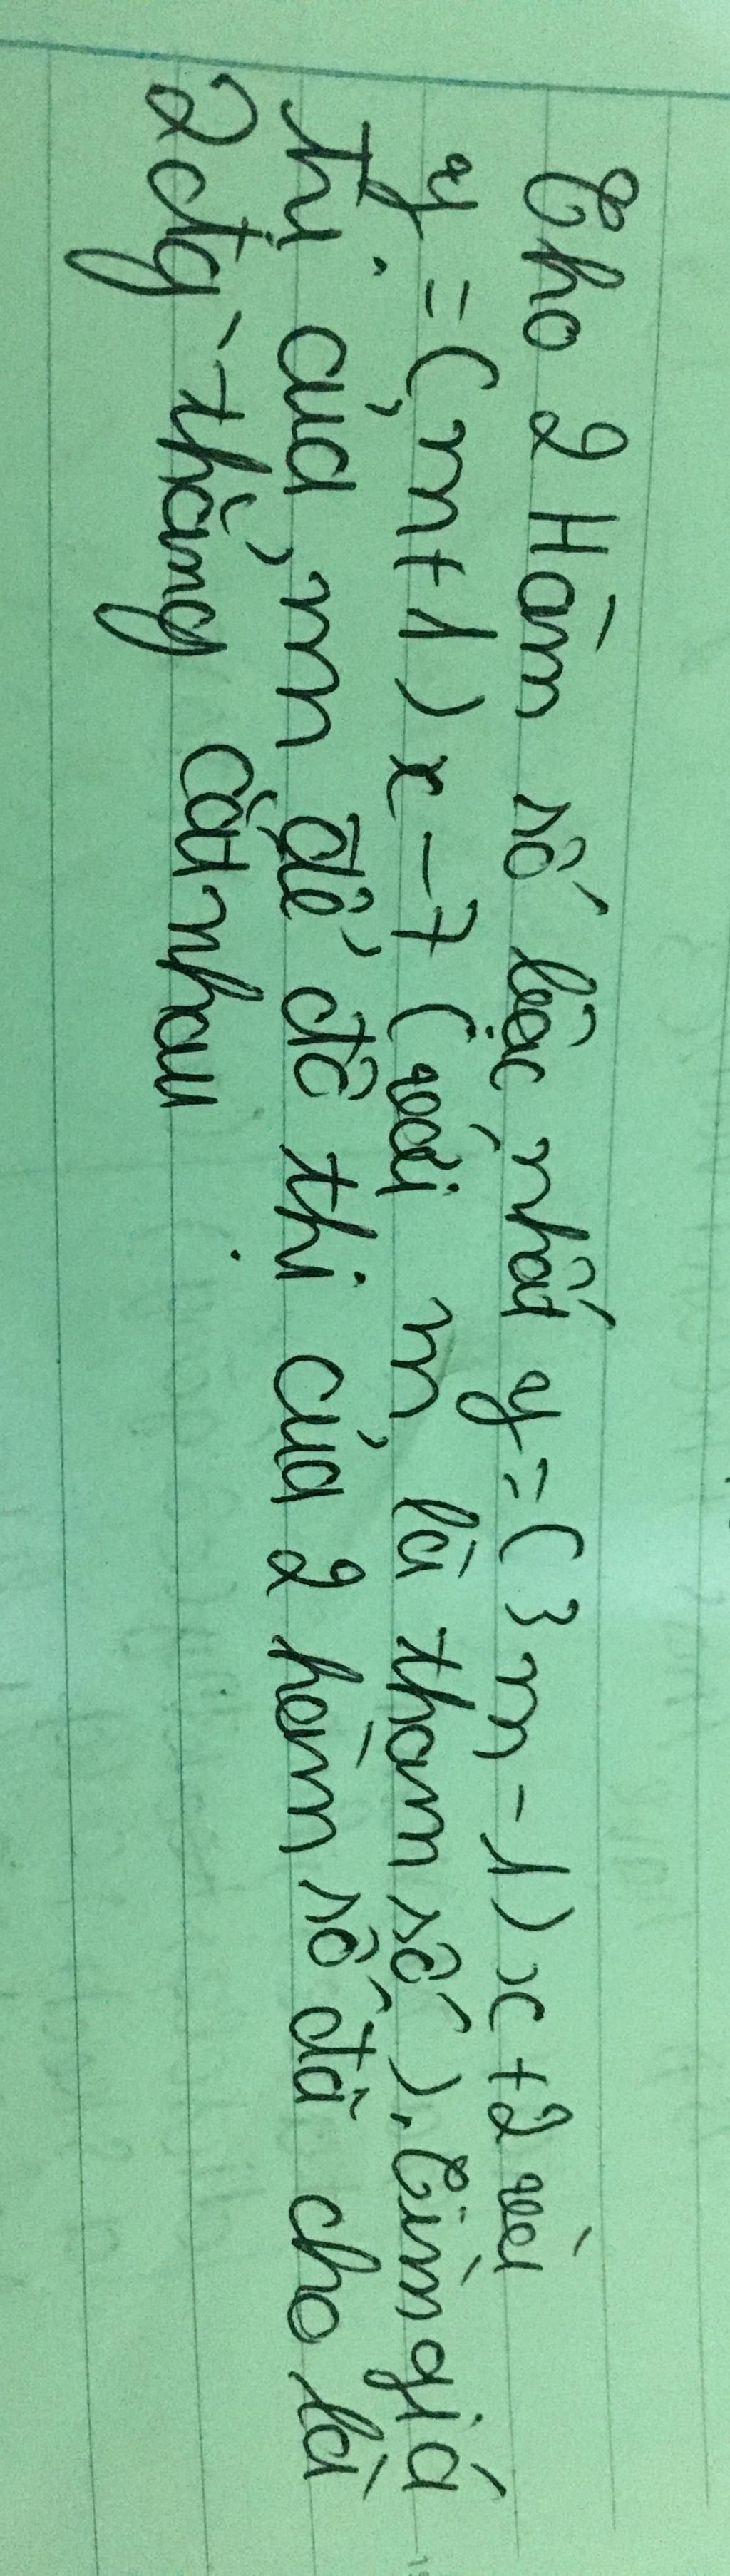 Cho 2 Hàm số bậc nhất y = (3m - 1)x + 2 và
y = (m + 1)x - 7 (với m là tham số). Tìm giá
thị của m để đồ thị của 2 hàm số đã cho là
2 đg thẳng cắt nhau